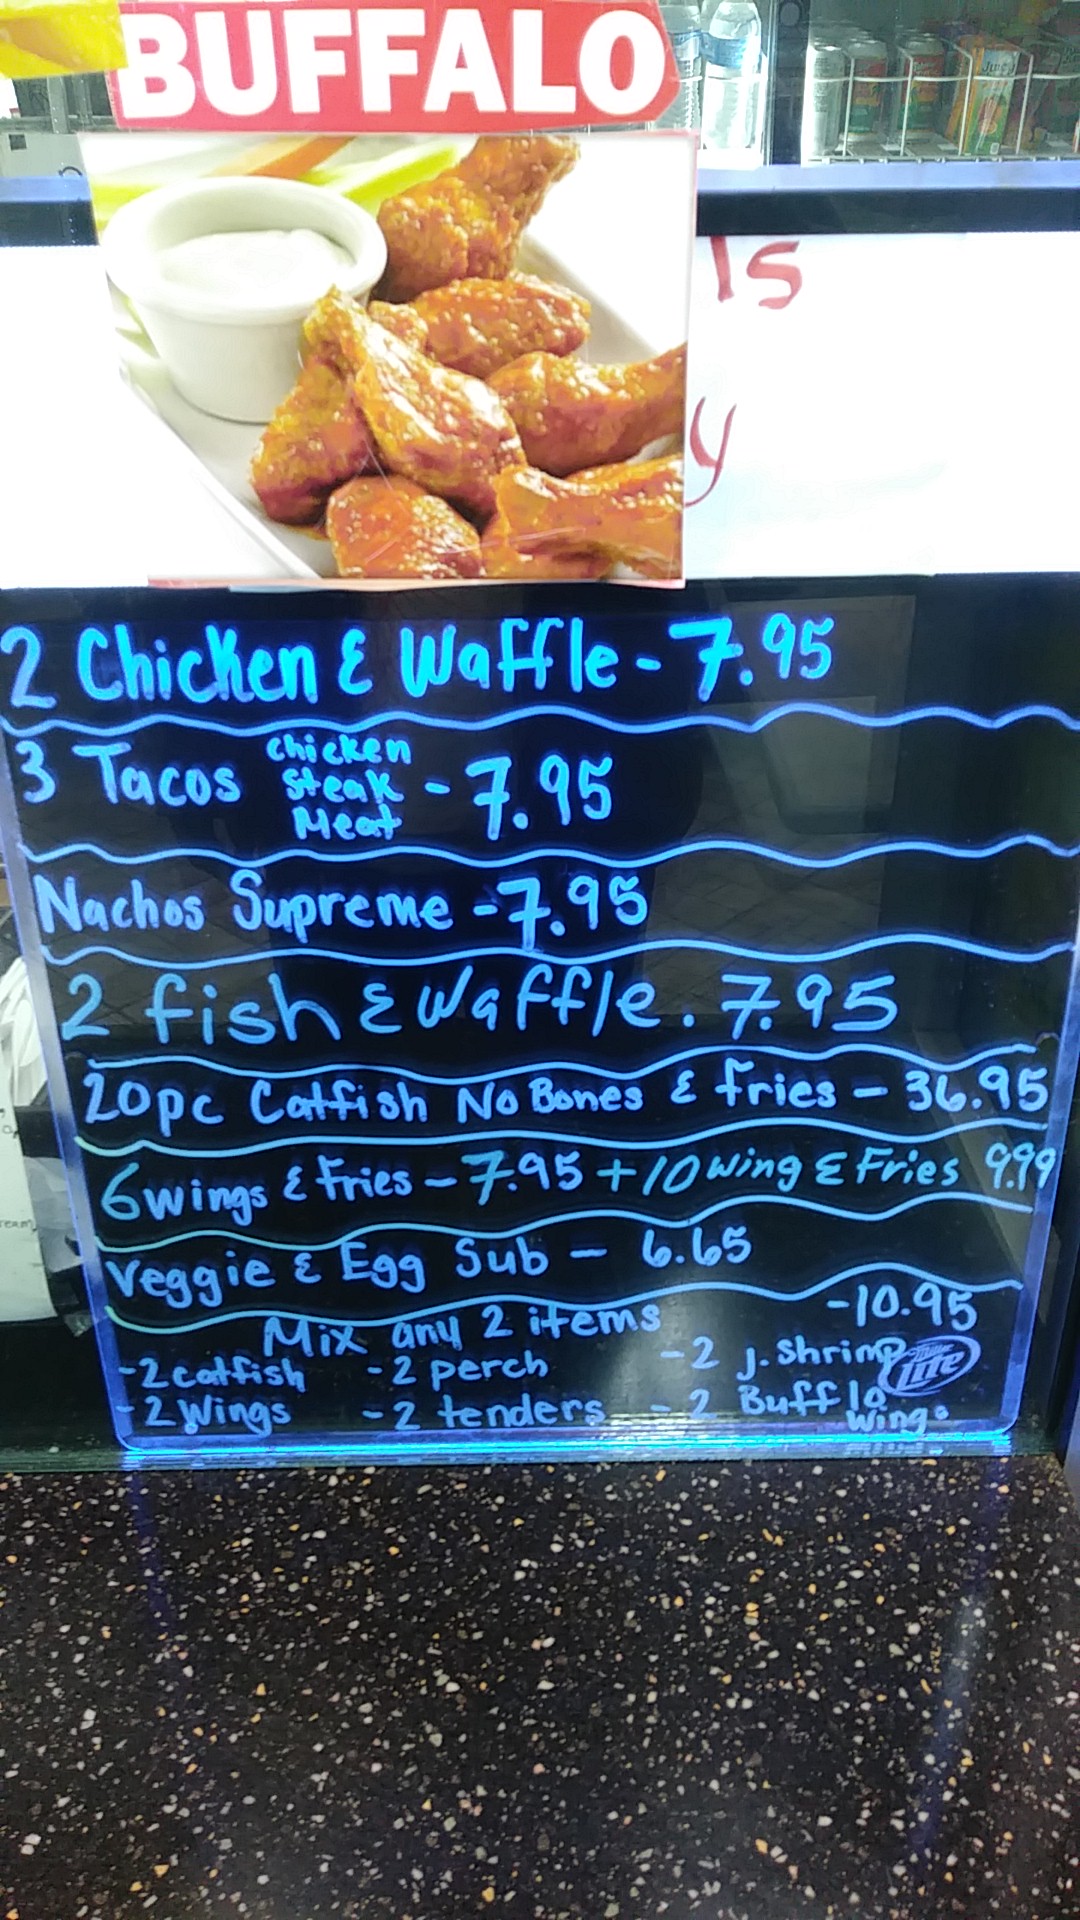 BUFFALO
Juicy
ls
y
2 Chicken & Waffle - 7.95
3 Tacos chicken steak Meat - 7.95
Nachos Supreme - 7.95
2 fish & Waffle. 7.95
20pc Catfish No Bones & fries - 36.95
6 wings & fries - 7.95 + 10 wing & Fries 9.99
Veggie & Egg Sub - 6.65
Mix any 2 items -10.95
-2 catfish -2 perch -2 J. Shrimp
-2 Wings -2 tenders - 2 Bufflo Wing.
Miller Lite